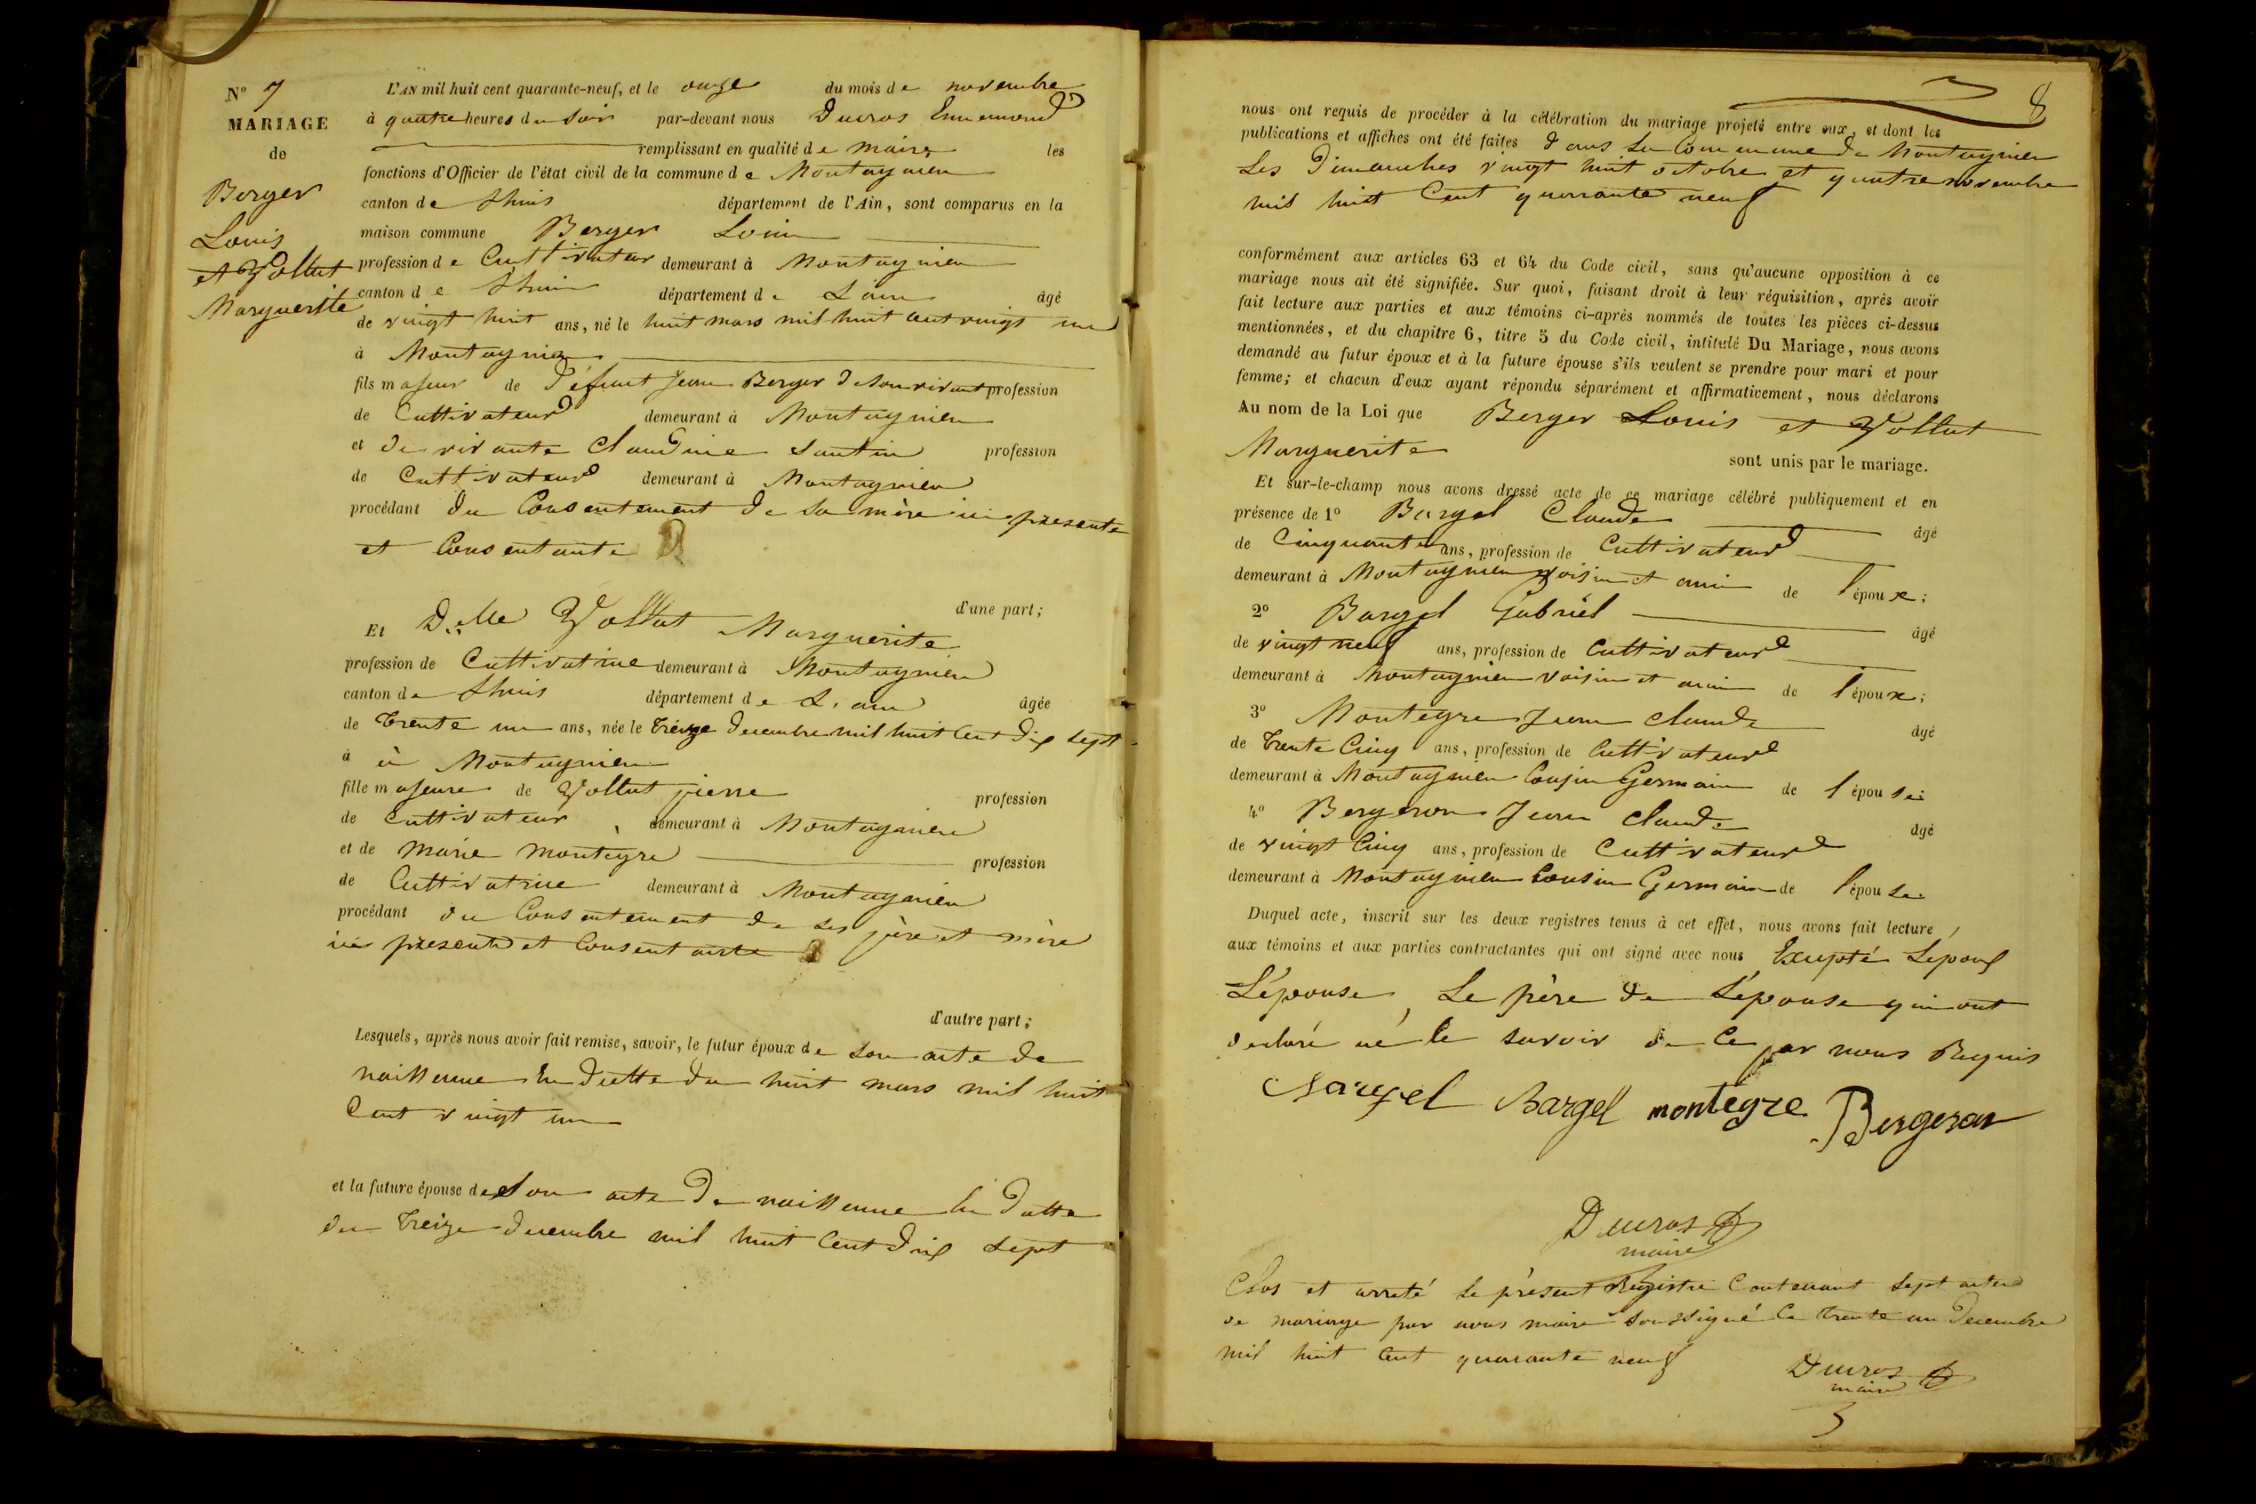 N° 7
MARIAGE
de
Berger
Louis
et Vollut
Marguerite
L'AN mil huit cent quarante-neuf, et le onze du mois de novembre
à quatre heures du soir par-devant nous Ducros Ennemond
remplissant en qualité de maire les
fonctions d'Officier de l'état civil de la commune de Montagnieu
canton de Lhuis département de l'Ain, sont comparus en la
maison commune Berger Louis
profession de Cultivateur demeurant à Montagnieu
canton de Lhuis département de Lain âgé
de vingt huit ans, né le huit mars mil huit cent vingt un
à Montagnieu
fils majeur de Défunt Jean Berger de son vivant profession
de Cultivateur demeurant à Montagnieu
et de vivante Claudine Santin profession
de Cultivateur demeurant à Montagnieu
procédant du Consentement de sa mère ici présente
et Consentante
d'une part;
Et D.lle Vollut Marguerite
profession de Cultivatrice demeurant à Montagnieu
canton de Lhuis département de L'ain âgée
de trente un ans, née le treize decembre mil huit cent dix sept
à à Montagnieu
fille majeure de Vollut pierre profession
de Cultivateur demeurant à Montagnieu
et de marie montègre profession
de Cultivatrice demeurant à Montagnieu
procédant du Consentement de ses père et mère
ici présents et Consentante
d'autre part;
Lesquels, après nous avoir fait remise, savoir, le futur époux de son acte de
naissance en datte du huit mars mil huit
Cent vingt un
et la future épouse de son acte de naissance en datte
du treize decembre mil huit Cent dix sept
8
nous ont requis de procéder à la célébration du mariage projeté entre eux, et dont les
publications et affiches ont été faites dans la Commune de Montagnieu
Les Dimanches vingt huit octobre et quatre novembre
mil huit Cent quarante neuf
conformément aux articles 63 et 64 du Code civil, sans qu'aucune opposition à ce
mariage nous ait été signifiée. Sur quoi, faisant droit à leur réquisition, après avoir
fait lecture aux parties et aux témoins ci-après nommés de toutes les pièces ci-dessus
mentionnées, et du chapitre 6, titre 5 du Code civil, intitulé Du Mariage, nous avons
demandé au futur époux et à la future épouse s'ils veulent se prendre pour mari et pour
femme; et chacun d'eux ayant répondu séparément et affirmativement, nous déclarons
Au nom de la Loi que Berger Louis et Vollut
Marguerite sont unis par le mariage.
Et sur-le-champ nous avons dressé acte de ce mariage célébré publiquement et en
présence de 1° Bargel Claude âgé
de Cinquante ans, profession de Cultivateur
demeurant à Montagnieu voisin et ami de l'époux;
2° Bargel Gabriel âgé
de vingt neuf ans, profession de Cultivateur
demeurant à Montagnieu voisin et ami de l'époux;
3° Montegre Jean Claude âgé
de trente Cinq ans, profession de Cultivateur
demeurant à Montagnieu Cousin Germain de l'épouse
4° Bergeron Jean Claude âgé
de vingt Cinq ans, profession de Cultivateur
demeurant à Montagnieu Cousin Germain de l'épouse
Duquel acte, inscrit sur les deux registres tenus à cet effet, nous avons fait lecture,
aux témoins et aux parties contractantes qui ont signé avec nous Excepté Lépoux
L'épouse, Le père de L'épouse qui ont
declaré né le savoir de ce par nous Requis
Bargel Bargel montegre Bergeron
Ducros
maire
Clos et arreté le présent Registre Contenant Sept actes
de mariage par nous maire Soussigné Ce trente un Decembre
mil huit Cent quarante neuf
Ducros
maire